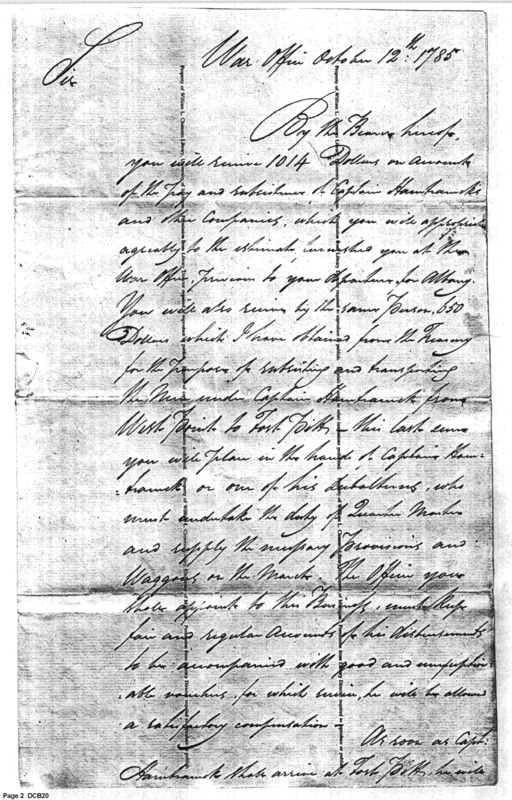 War Office October 12th. 1785
Sir
By the Bearer hereof,
you will receive 1014 Dollars on account
of the pay and subsistence of Captain Hamtramcks
and other Companies, which you will appropriate
agreeably to the estimate, furnished you at the
War Office, previous to your departure for Albany.
You will also receive by the same Person, 650
Dollars which I have obtained from the Treasury
for the Purpose of subsisting and transporting
the Men under Captain Hamtramck from
West Point to Fort Pitt – this last sum
you will place in the hands of Captain Ham-
-tramck or one of his Subalterns, who
must undertake the duty of Quarter Master
and supply the necessary Provisions and
Waggons on the March. The Officer you
shall appoint to this Business, must keep
fair and regular Accounts of his disbursements
to be accompanied with good and unexception
-able vouchers, for which service, he will be allowed
a satisfactory compensation –
As soon as Capt:
Hamtramck shall arrive at Fort Pitt, he will
Page 2 DCB20